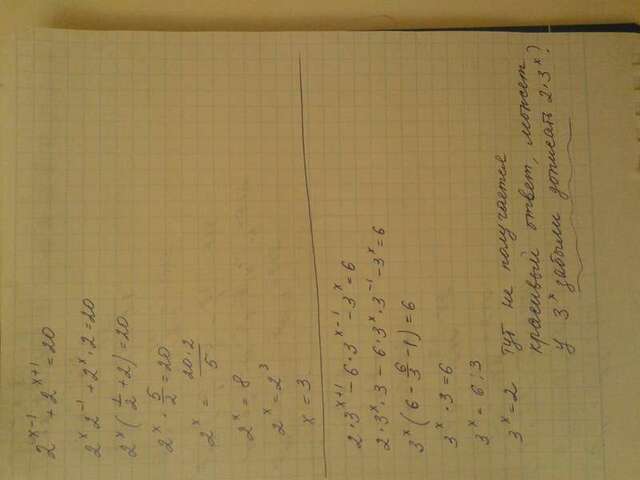 2^(x-1) + 2^(x+1) = 20
2^x · 2^(-1) + 2^x · 2 = 20
2^x (1/2 + 2) = 20
2^x · 5/2 = 20
2^x = (20·2)/5
2^x = 8
2^x = 2^3
x = 3
2·3^(x+1) - 6·3^(x-1) - 3^x = 6
2·3^x·3 - 6·3^x·3^(-1) - 3^x = 6
3^x (6 - 6/3 - 1) = 6
3^x · 3 = 6
3^x = 6:3
3^x = 2
тут не получается
красивый ответ, может
у 3^x забыли дописать 2·3^x?